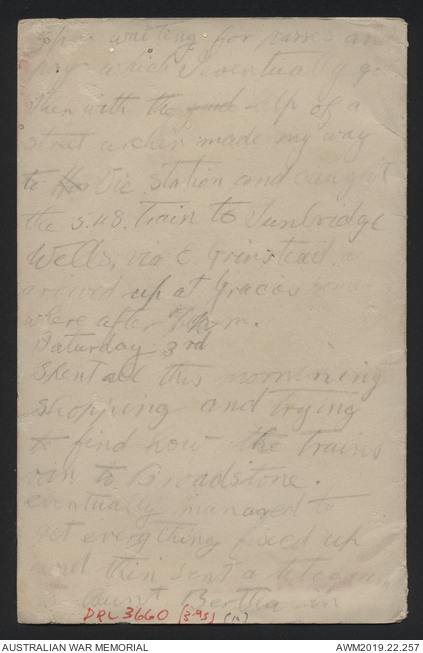 spin waiting for passes and
pay which I eventually got
then with the help of a
street urcher made my way
to Vic. Station and caught
the 5.48. Train to Tunbridge
Wells, via E. Grinstead, &
arrived up at Graces some
where after 7 p.m.
Saturday 3rd
Spent all this mornining
shopping and trying
to find how the Trains
ran to Broadstone.
eventually managed to
get everything fixed up
and then sent a telegram
Aunt Bertha in
DRL 3660 (3rd S) (16)
AUSTRALIAN WAR MEMORIAL
AWM2019.22.257